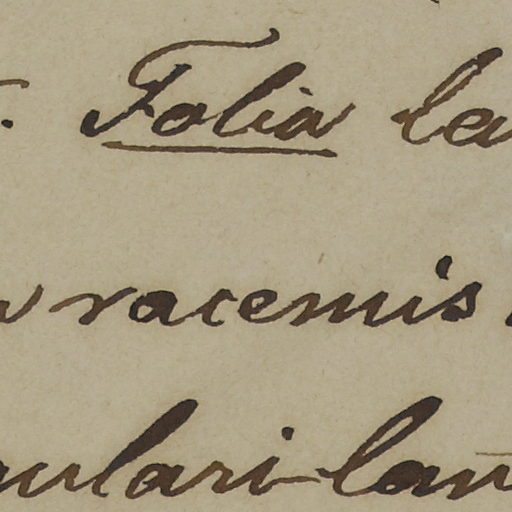 Folia la
racemis
ulari-lan